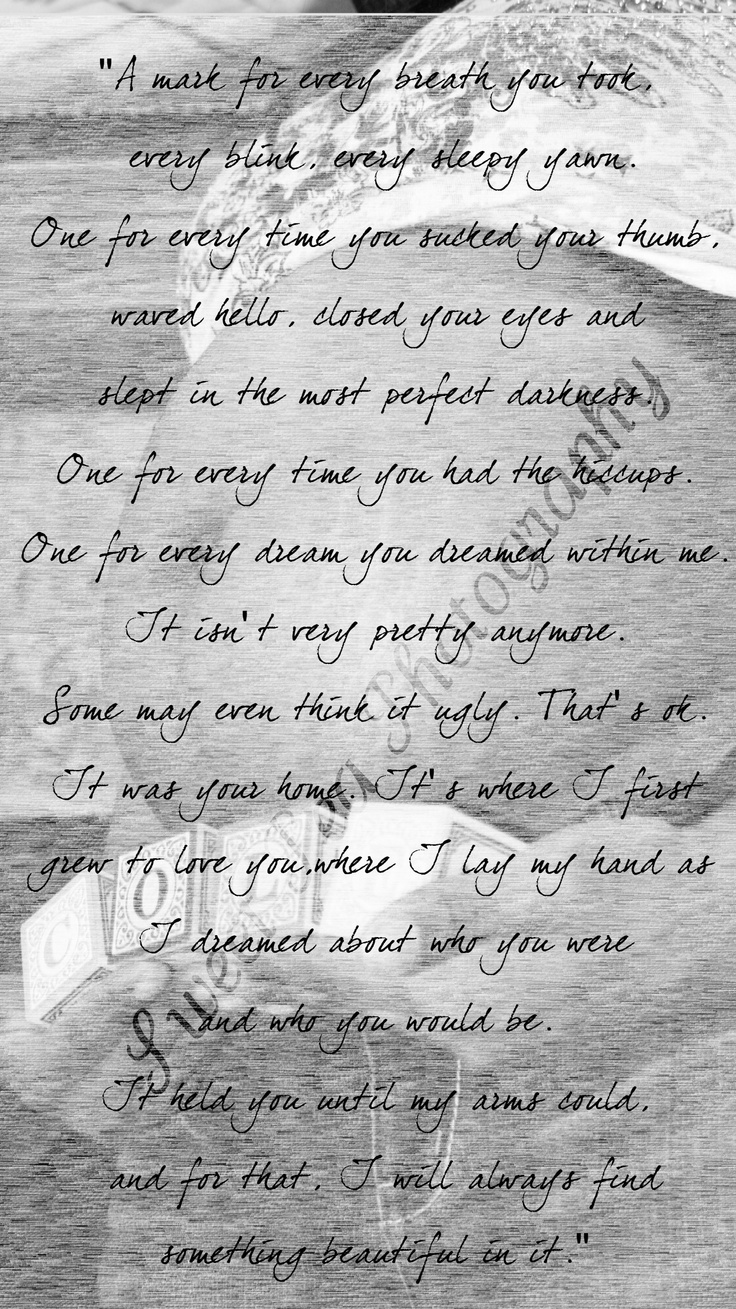 "A mark for every breath you took,
every blink, every sleepy yawn.
One for every time you sucked your thumb,
waved hello, closed your eyes and
slept in the most perfect darkness.
One for every time you had the hiccups.
One for every dream you dreamed within me.
It isn't very pretty anymore.
Some may even think it ugly. That's ok.
It was your home. It's where I first
grew to love you,where I lay my hand as
I dreamed about who you were
and who you would be.
It held you until my arms could,
and for that, I will always find
something beautiful in it."
Photography
C O